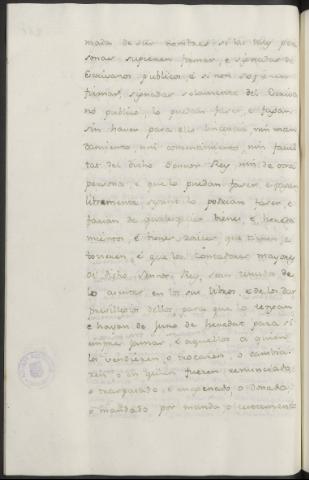 mada de sus nombres si las tales per
sonas supieren firmar, e signadas de
Escrivanos publicos, é si non sopieren
firmar, signadas solamente del Escriva
no publico, lo puedan faser, e fagan
sin haver para ello licencia nin man
damiento, nin consentimiento, nin facul
tat del dicho Sennor Rey, nin de otra
persona, e que lo puedan faser, e fagan
libremente segunt lo podrian faser, e
farian de qualesquier bienes, e hereda
mientos, é bienes raices que tienen, e
tovieren, é que los Contadores mayores
del dicho Sennor Rey, sean tenudos de
lo asentar en los sus libros, e de les dar
previllejos dellos, para que lo tengan
e hayan de juro de heredat para sí
empre jamas, e aquellos a quien
los vendieren, o trocaren, o cambia
ren o en quien fueren renunciados
o traspasado, e empenado, o donado
o mandado por manda o testamento